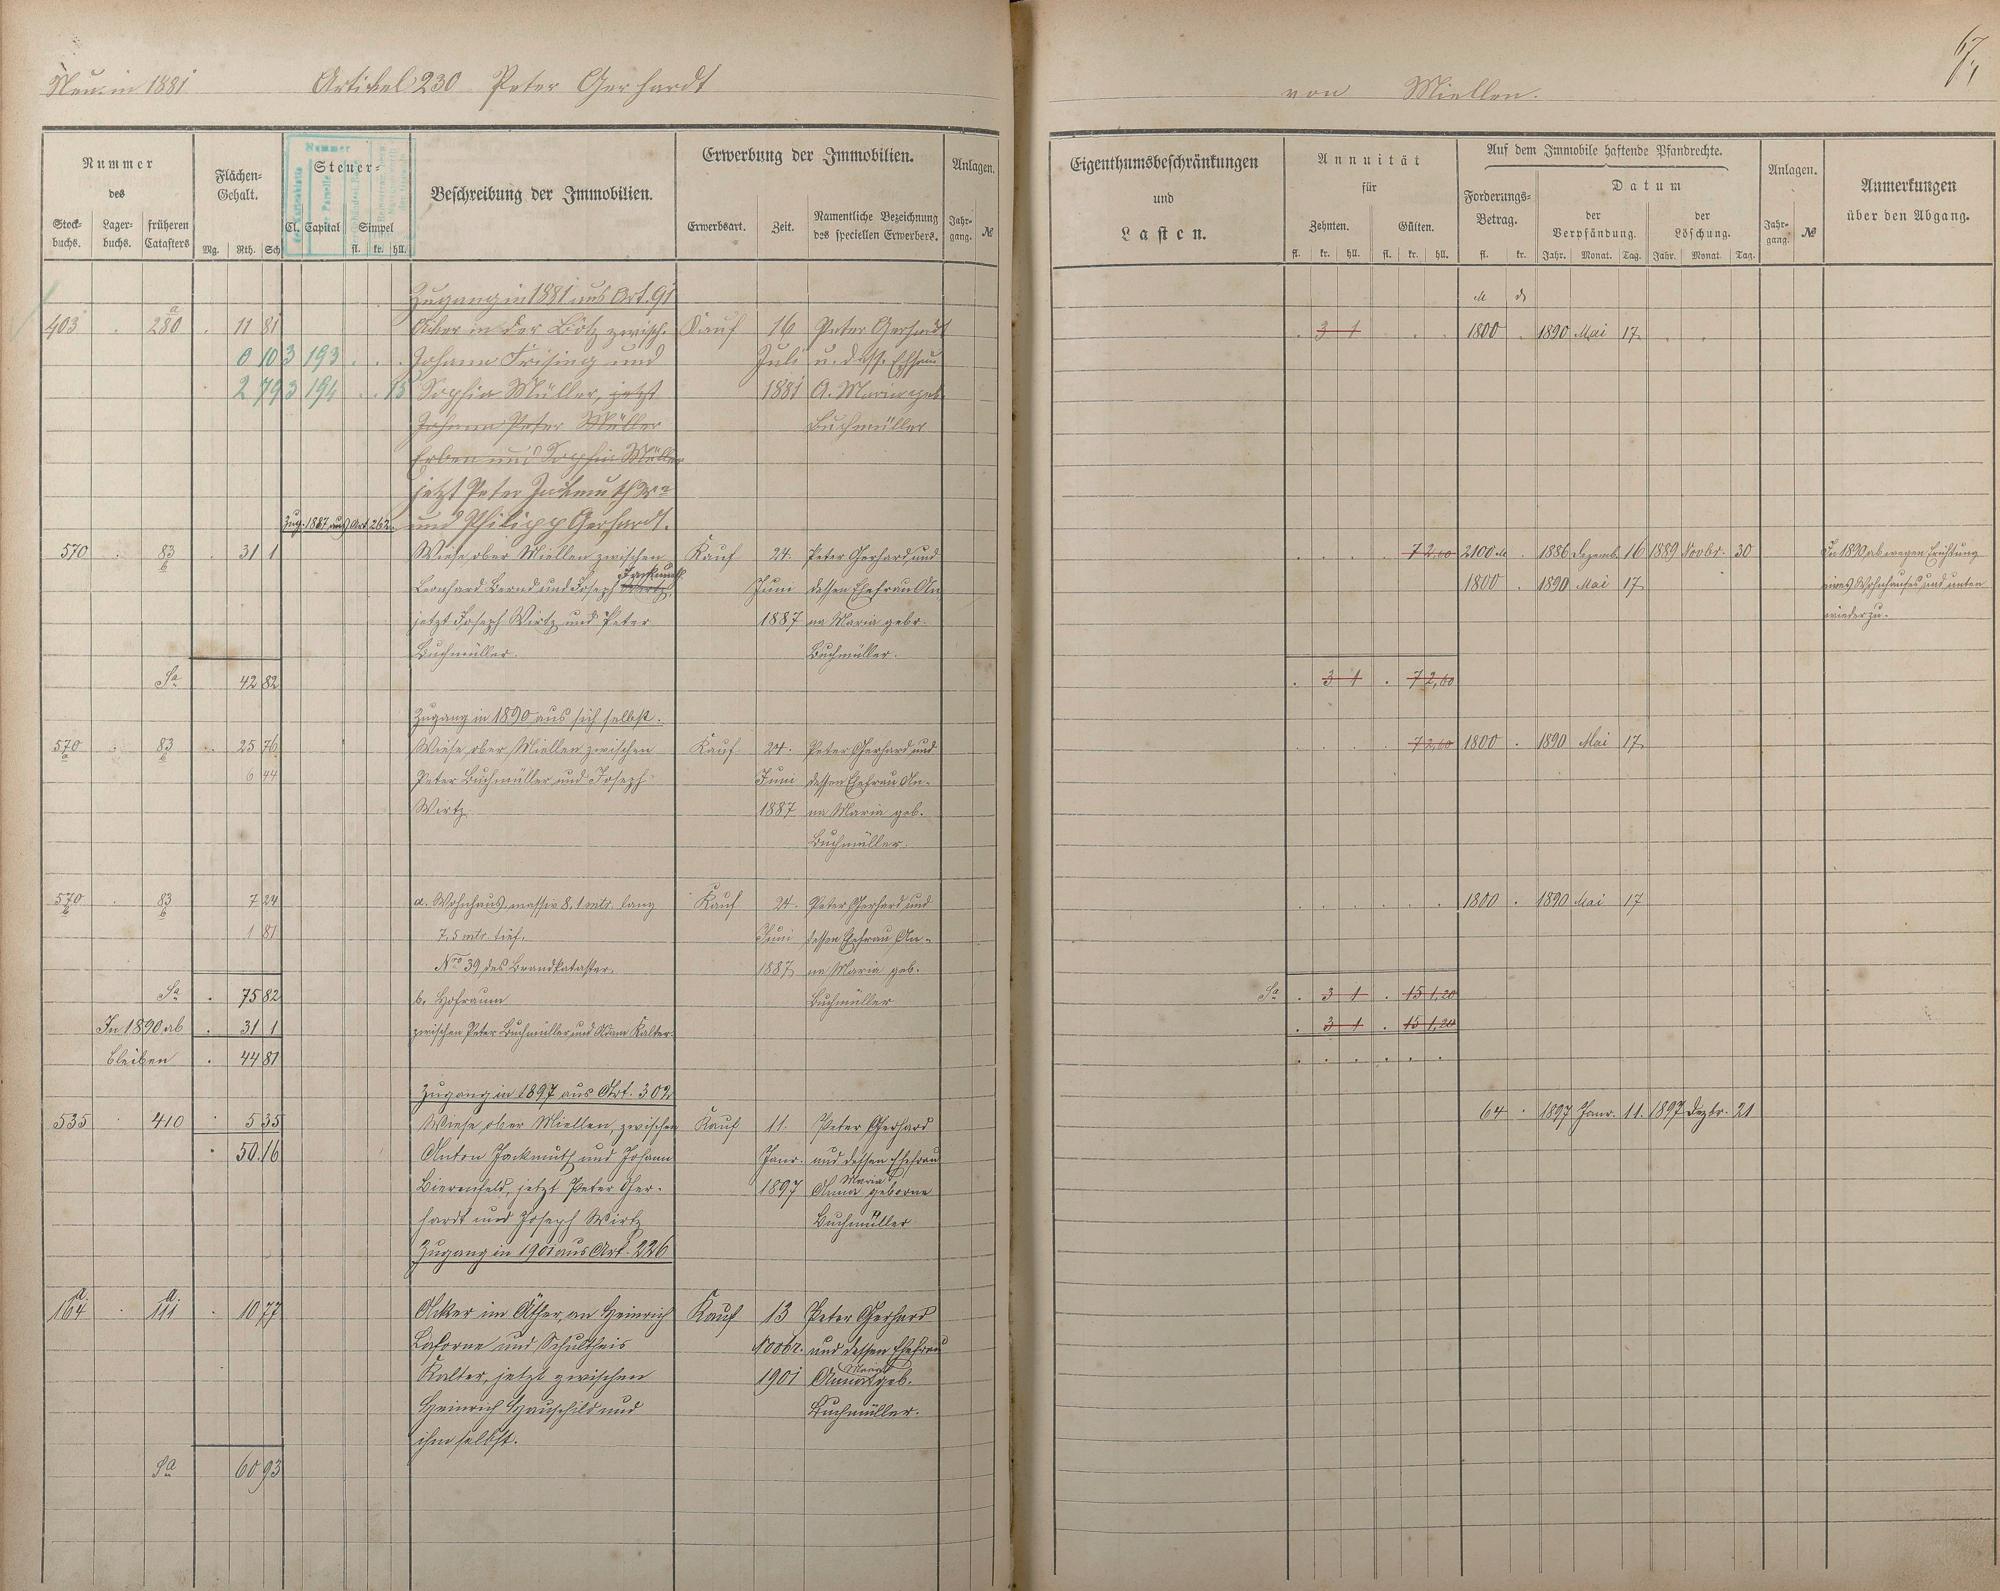 67,1
Neu in 1881 Artikel 230 Peter Gerhardt von Miellen.
Nummer des
Stock-buchs. Lager-buchs. früheren Catasters
Flächen-Gehalt.
Mg. Rth. Sch
Nummer
Steuer-
Cl. Capital Simpel
fl. kr. hll.
Beschreibung der Immobilien.
Erwerbung der Immobilien.
Erwerbsart. Zeit. Namentliche Bezeichnung des speciellen Erwerbers.
Anlagen.
Jahr-gang. №
Eigenthumsbeschränkungen und Lasten.
Annuität für
Zehnten. Gülten.
fl. kr. hll. fl. kr. hll.
Auf dem Immobile haftende Pfandrechte.
Forderungs-Betrag.
fl. kr.
Datum
der Verpfändung. der Löschung.
Jahr. Monat. Tag. Jahr. Monat. Tag.
Anlagen.
Jahr-gang. №
Anmerkungen über den Abgang.
Zugang in 1881 aus Art. 91
403 280 a 11 81 Acker in der Bötz zwisch. Kauf 16 Peter Gerhardt 3 1 1800 1890 Mai 17.
0 10 3 193 Johann Frising und Juli u. dess. Ehefrau
2 79 3 194 15 Sophia Müller, jetzt 1881 A. Maria geb.
Johann Peter Müller Buchmüller
Erben und Sophia Müller
jetzt Peter Jackmuth
und Philipp Gerhardt.
Zug. 1887 aus Art. 262.
570 83 b 31 1 Wiese ober Miellen zwischen Kauf 24. Peter Gerhard und 7 2,60 2100 M 1886 Dezemb. 16 1889 Novbr. 30 In 1890 ab wegen Erichtung
Leonhard Bernd und Joseph Wirtz, Jackmuth Juni dessen Ehefrau An 1800 1890 Mai 17 eines Wohnhauses und unten
jetzt Joseph Wirtz und Peter 1887 na Maria gebr. wieder zu.
Buchmüller. Buchmüller.
Sa 42 82 3 1 7 2,60
Zugang in 1890 aus sich selbst.
570 a 83 b 25 76 Wiese ober Miellen zwischen Kauf 24. Peter Gerhard und 7 2,60 1800 1890 Mai 17.
6 44 Peter Buchmüller und Joseph Juni dessen Ehefrau An-
Wirtz. 1887 na Maria geb.
Buchmüller.
570 b 83 b 7 24 a. Wohnhaus, massiv 8,1 mtr. lang Kauf 24. Peter Gerhard und 1800 1890 Mai 17
1 81 7,5 mtr. tief, Juni dessen Ehefrau An-
Nro 39 des Brandkataster. 1887 na Maria geb.
Sa 75 82 b. Hofraum Buchmüller Sa 3 1 15 1,20
In 1890 ab 31 1 zwischen Peter Buchmüller und Adam Kalter. 3 1 15 1,20
bleiben 44 81
Zugang in 1897 aus Art. 302
535 410 5 35 Wiese ober Miellen, zwischen Kauf 11. Peter Gerhard 64 1897 Janr. 11. 1897 Dezbr. 21
50.16 Anton Jackmuth und Johann Janr. und dessen Ehefrau
Bierenfeld, jetzt Peter Ger- 1897 Anna Maria geborne
hardt und Joseph Wirtz Buchmüller
Zugang in 1901 aus Art. 226
164 a. 111 a. 10 77 Acker im Äther, an Heinrich Kauf 13 Peter Gerhard
Laforne und Schultheis Novbr. und dessen Ehefrau
Kalter, jetzt zwischen 1901 Anna Maria geb.
Heinrich Hauschild und Buchmüller.
ihm selbst.
Sa 60 93